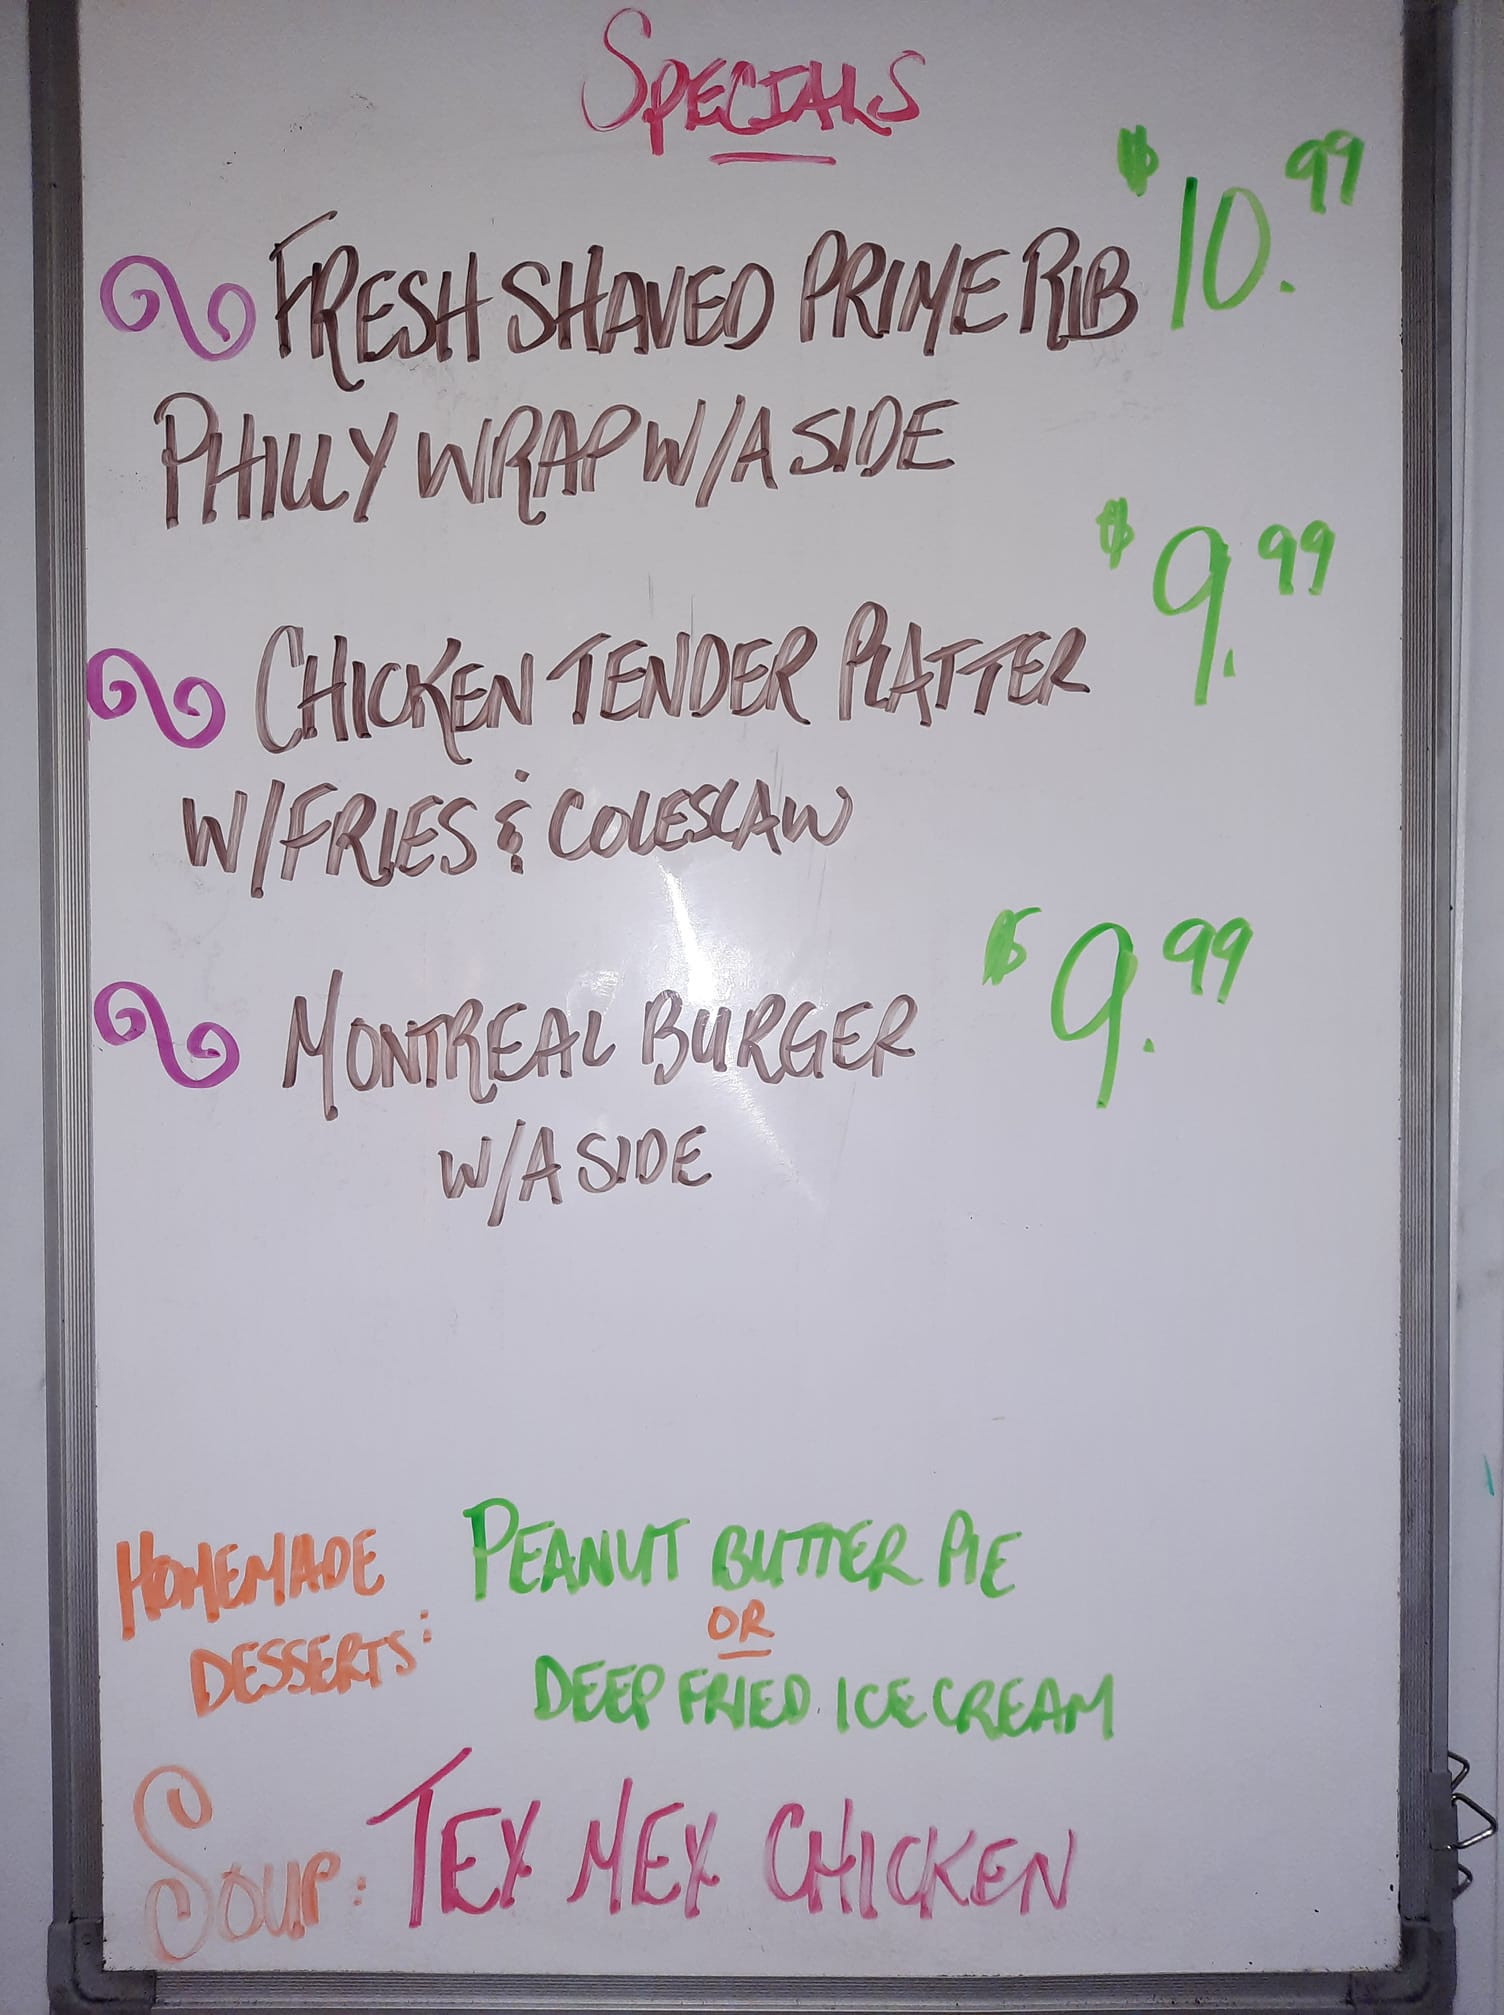 SPECIALS
FRESH SHAVED PRIME RIB $10.99
PHILLY WRAP W/A SIDE
CHICKEN TENDER PLATTER $9.99
W/FRIES & COLESLAW
MONTREAL BURGER $9.99
W/A SIDE
HOMEMADE DESSERTS: PEANUT BUTTER PIE
OR
DEEP FRIED ICE CREAM
SOUP: TEX MEX CHICKEN